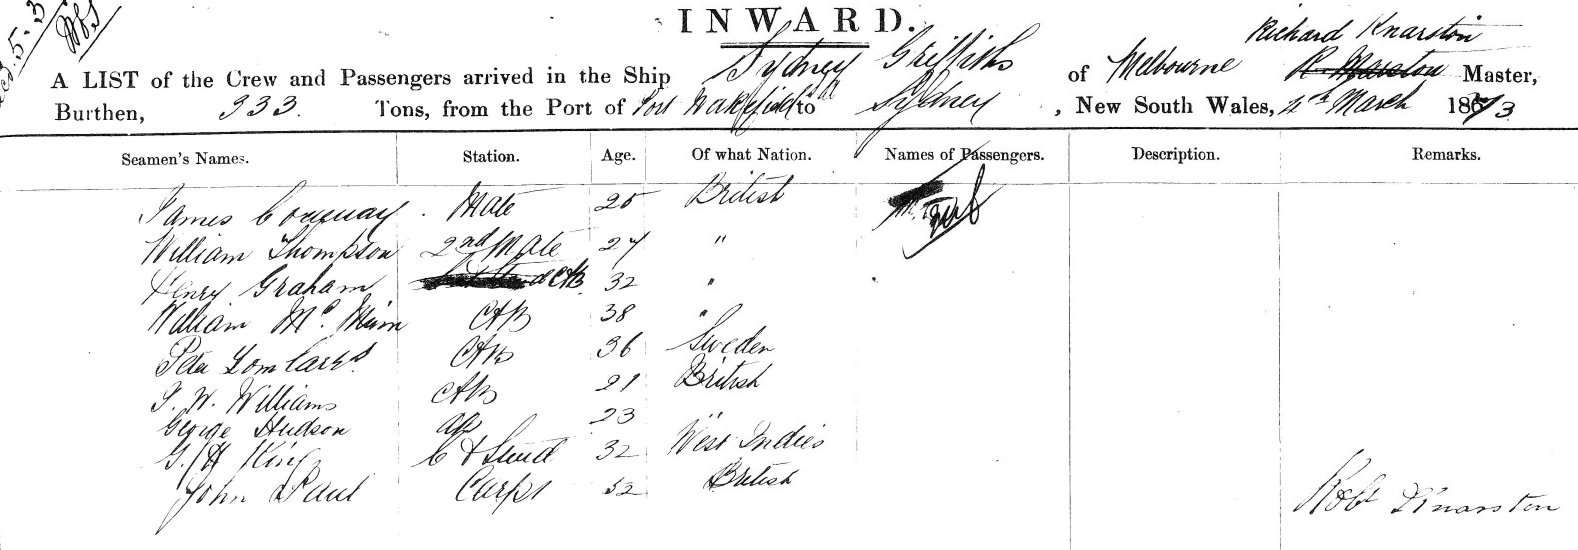 INWARD.
Richard Knarston
A LIST of the Crew and Passengers arrived in the Ship Sydney Griffiths of Melbourne R. Marston Master,
Burthen, 933. Tons, from the Port of Port Wakefield to Sydney, New South Wales, March 1873
Seamen's Names. Station. Age. Of what Nation. Names of Passengers. Description. Remarks.
James Mate British
William Thompson 2nd Mate 24 "
Henry Graham AB 32 "
William Mc AB 38 "
Peter AB 36 Sweden
T. W. Williams AB 21 British
George Hudson 23 "
G. H King C & Stwd 32 West Indies
John Paul Carpt 52 British
Robt Knarston